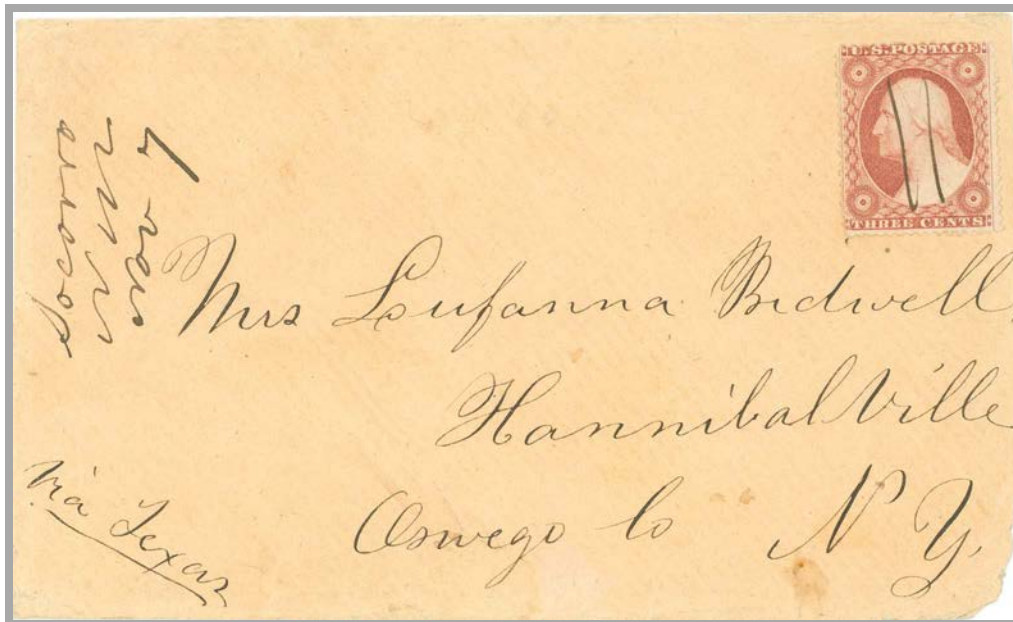 U.S. POSTAGE
THREE CENTS
Mrs Lufanna Bidwell
Hannibal Ville
Oswego Co N Y.
Via Texas